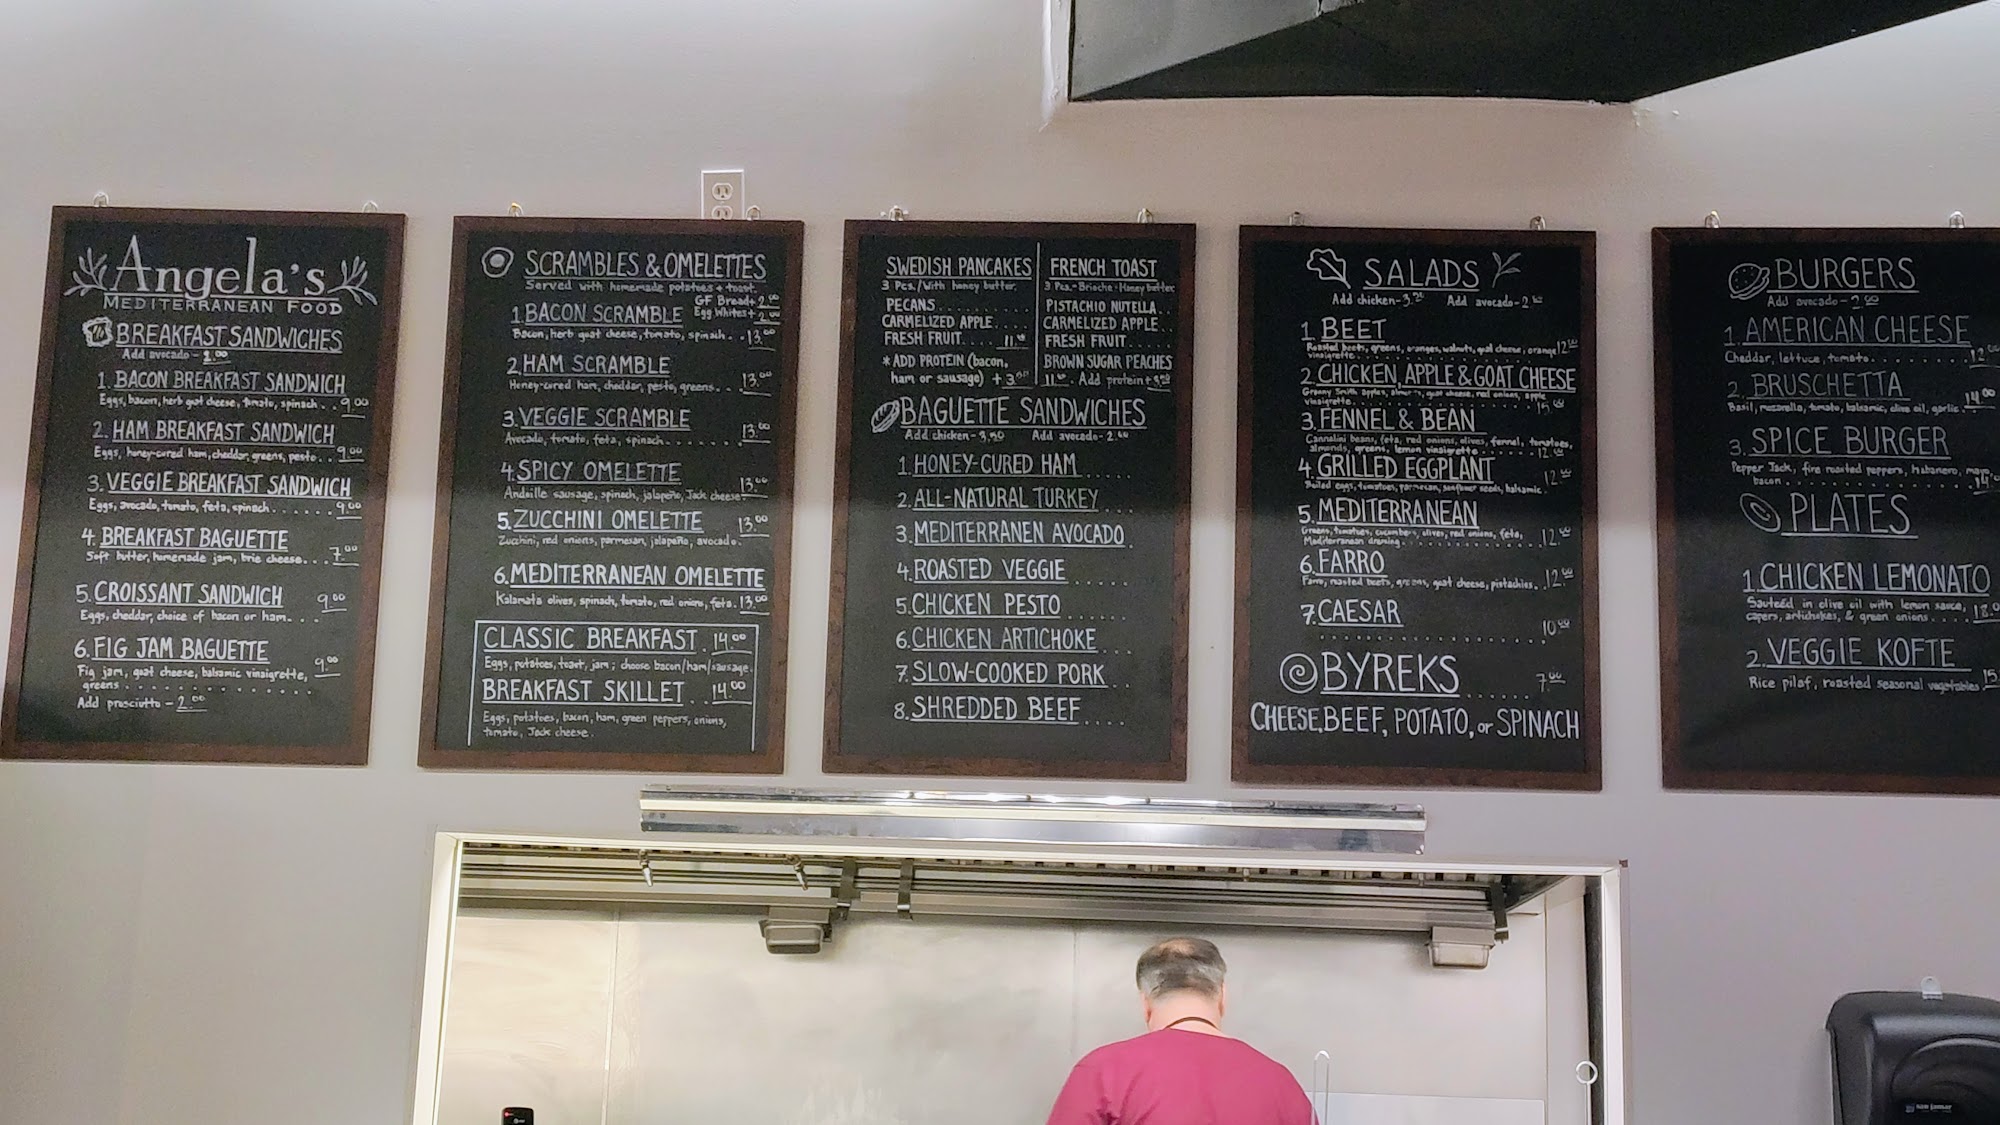 Angela's
MEDITERRANEAN FOOD
BREAKFAST SANDWICHES
Add avocado - 2.00
1. BACON BREAKFAST SANDWICH
Eggs, bacon, herb goat cheese, tomato, spinach . . 9.00
2. HAM BREAKFAST SANDWICH
Eggs, honey-cured ham, cheddar, greens, pesto . . 9.00
3. VEGGIE BREAKFAST SANDWICH
Eggs, avocado, tomato, feta, spinach . . . . . . 9.00
4. BREAKFAST BAGUETTE
Soft butter, homemade jam, brie cheese . . . 7.00
5. CROISSANT SANDWICH 9.00
Eggs, cheddar, choice of bacon or ham . . .
6. FIG JAM BAGUETTE
Fig jam, goat cheese, balsamic vinaigrette, 9.00
greens . . . . . . . . . . .
Add prosciutto - 2.00
SCRAMBLES & OMELETTES
Served with homemade potatoes + toast.
GF Bread + 2.00
1. BACON SCRAMBLE Egg Whites + 2.00
Bacon, herb goat cheese, tomato, spinach . . 13.00
2. HAM SCRAMBLE
Honey-cured ham, cheddar, pesto, greens . . . 13.00
3. VEGGIE SCRAMBLE
Avocado, tomato, feta, spinach . . . . . . . 13.00
4. SPICY OMELETTE
Andoille sausage, spinach, jalapeño, Jack cheese 13.00
5. ZUCCHINI OMELETTE 13.00
Zucchini, red onions, parmesan, jalapeño, avocado.
6. MEDITERRANEAN OMELETTE
Kalamata olives, spinach, tomato, red onions, feta. 13.00
CLASSIC BREAKFAST . 14.00
Eggs, potatoes, toast, jam; choose bacon/ham/sausage.
BREAKFAST SKILLET . . 14.00
Eggs, potatoes, bacon, ham, green peppers, onions,
tomato, Jack cheese.
SWEDISH PANCAKES
3 Pcs./With honey butter.
PECANS . . . .
CARMELIZED APPLE . . .
FRESH FRUIT . . . . 11.00
*ADD PROTEIN (bacon,
ham or sausage) + 3.50
FRENCH TOAST
3 Pcs.- Brioche - Honey butter
PISTACHIO NUTELLA . .
CARMELIZED APPLE . .
FRESH FRUIT . . . .
BROWN SUGAR PEACHES
11.00 . Add protein + 3.50
BAGUETTE SANDWICHES
Add chicken - 3.50 Add avocado - 2.00
1. HONEY-CURED HAM . . . .
2. ALL-NATURAL TURKEY . . .
3. MEDITERRANEN AVOCADO .
4. ROASTED VEGGIE . . . .
5. CHICKEN PESTO . . . .
6. CHICKEN ARTICHOKE . . .
7. SLOW-COOKED PORK . .
8. SHREDDED BEEF . . . .
SALADS
Add chicken - 3.50 Add avocado - 2.00
1. BEET
Roasted beets, greens, oranges, walnuts, goat cheese, orange 12.00
vinaigrette . . . .
2. CHICKEN, APPLE & GOAT CHEESE
Granny Smith apples, goat cheese, red onions, apple
vinaigrette . . . . 15.00
3. FENNEL & BEAN
Cannalini beans, feta, red onions, olives, fennel, tomatoes,
almonds, greens, lemon vinaigrette . . . . 12.00
4. GRILLED EGGPLANT 12.00
Boiled eggs, tomatoes, parmesan, sunflower seeds, balsamic.
5. MEDITERRANEAN
Greens, tomatoes, cucumbers, olives, red onions, feta,
Mediterranean dressing . . . . 12.00
6. FARRO
Farro, roasted beets, greens, goat cheese, pistachios . . . 12.00
7. CAESAR
. . . . 10.00
BYREKS . . . . . . 7.00
CHEESE, BEEF, POTATO, or SPINACH
BURGERS
Add avocado - 2.00
1. AMERICAN CHEESE
Cheddar, lettuce, tomato . . . . . . . 12
2. BRUSCHETTA
Basil, mozzarella, tomato, balsamic, olive oil, garlic . 14.00
3. SPICE BURGER
Pepper Jack, fire roasted peppers, habanero, mayo,
bacon . . . . . . . 14
PLATES
1. CHICKEN LEMONATO
Sauteéd in olive oil with lemon sauce,
capers, artichokes, & green onions . . . . 18.0
2. VEGGIE KOFTE
Rice pilaf, roasted seasonal vegetables. 15